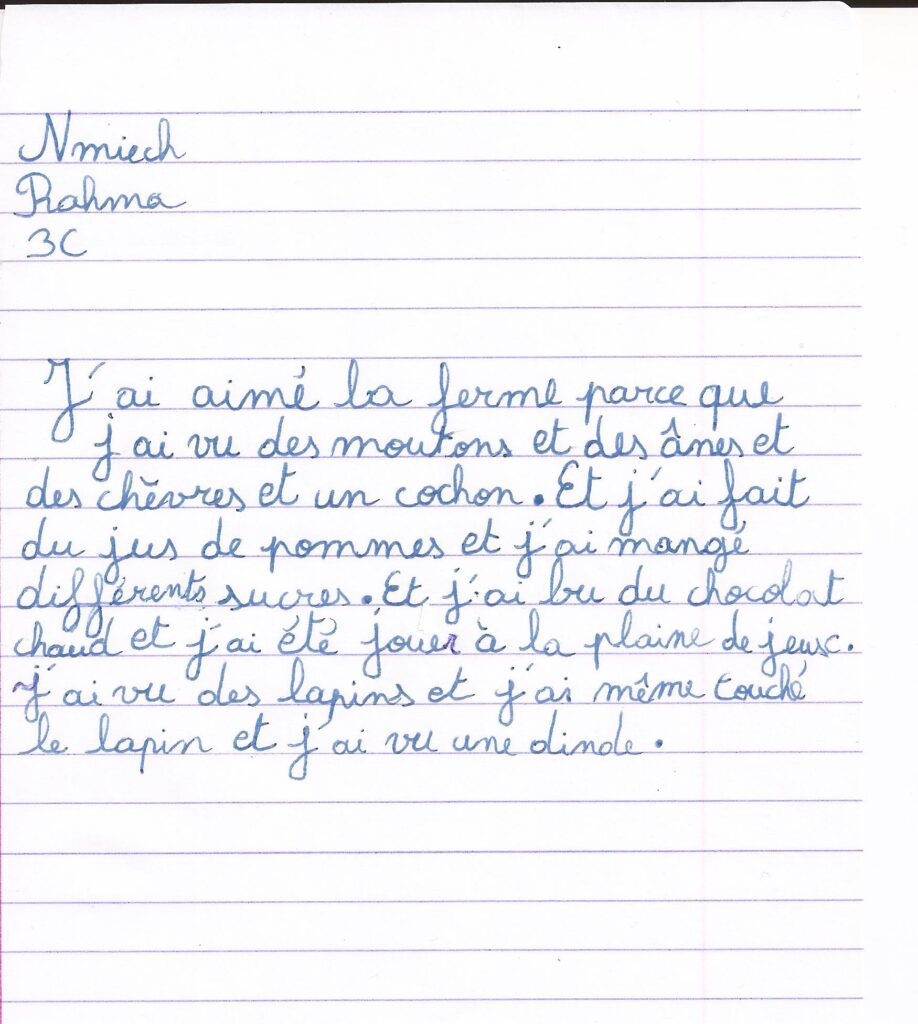 Nmiech
Rahma
3C
J'ai aimé la ferme parce que
j'ai vu des moutons et des ânes et
des chèvres et un cochon. Et j'ai fait
du jus de pommes et j'ai mangé
différents sucres. Et j'ai bu du chocolat
chaud et j'ai été jouer à la plaine de jeux.
J'ai vu des lapins et j'ai même touché
le lapin et j'ai vu une dinde.